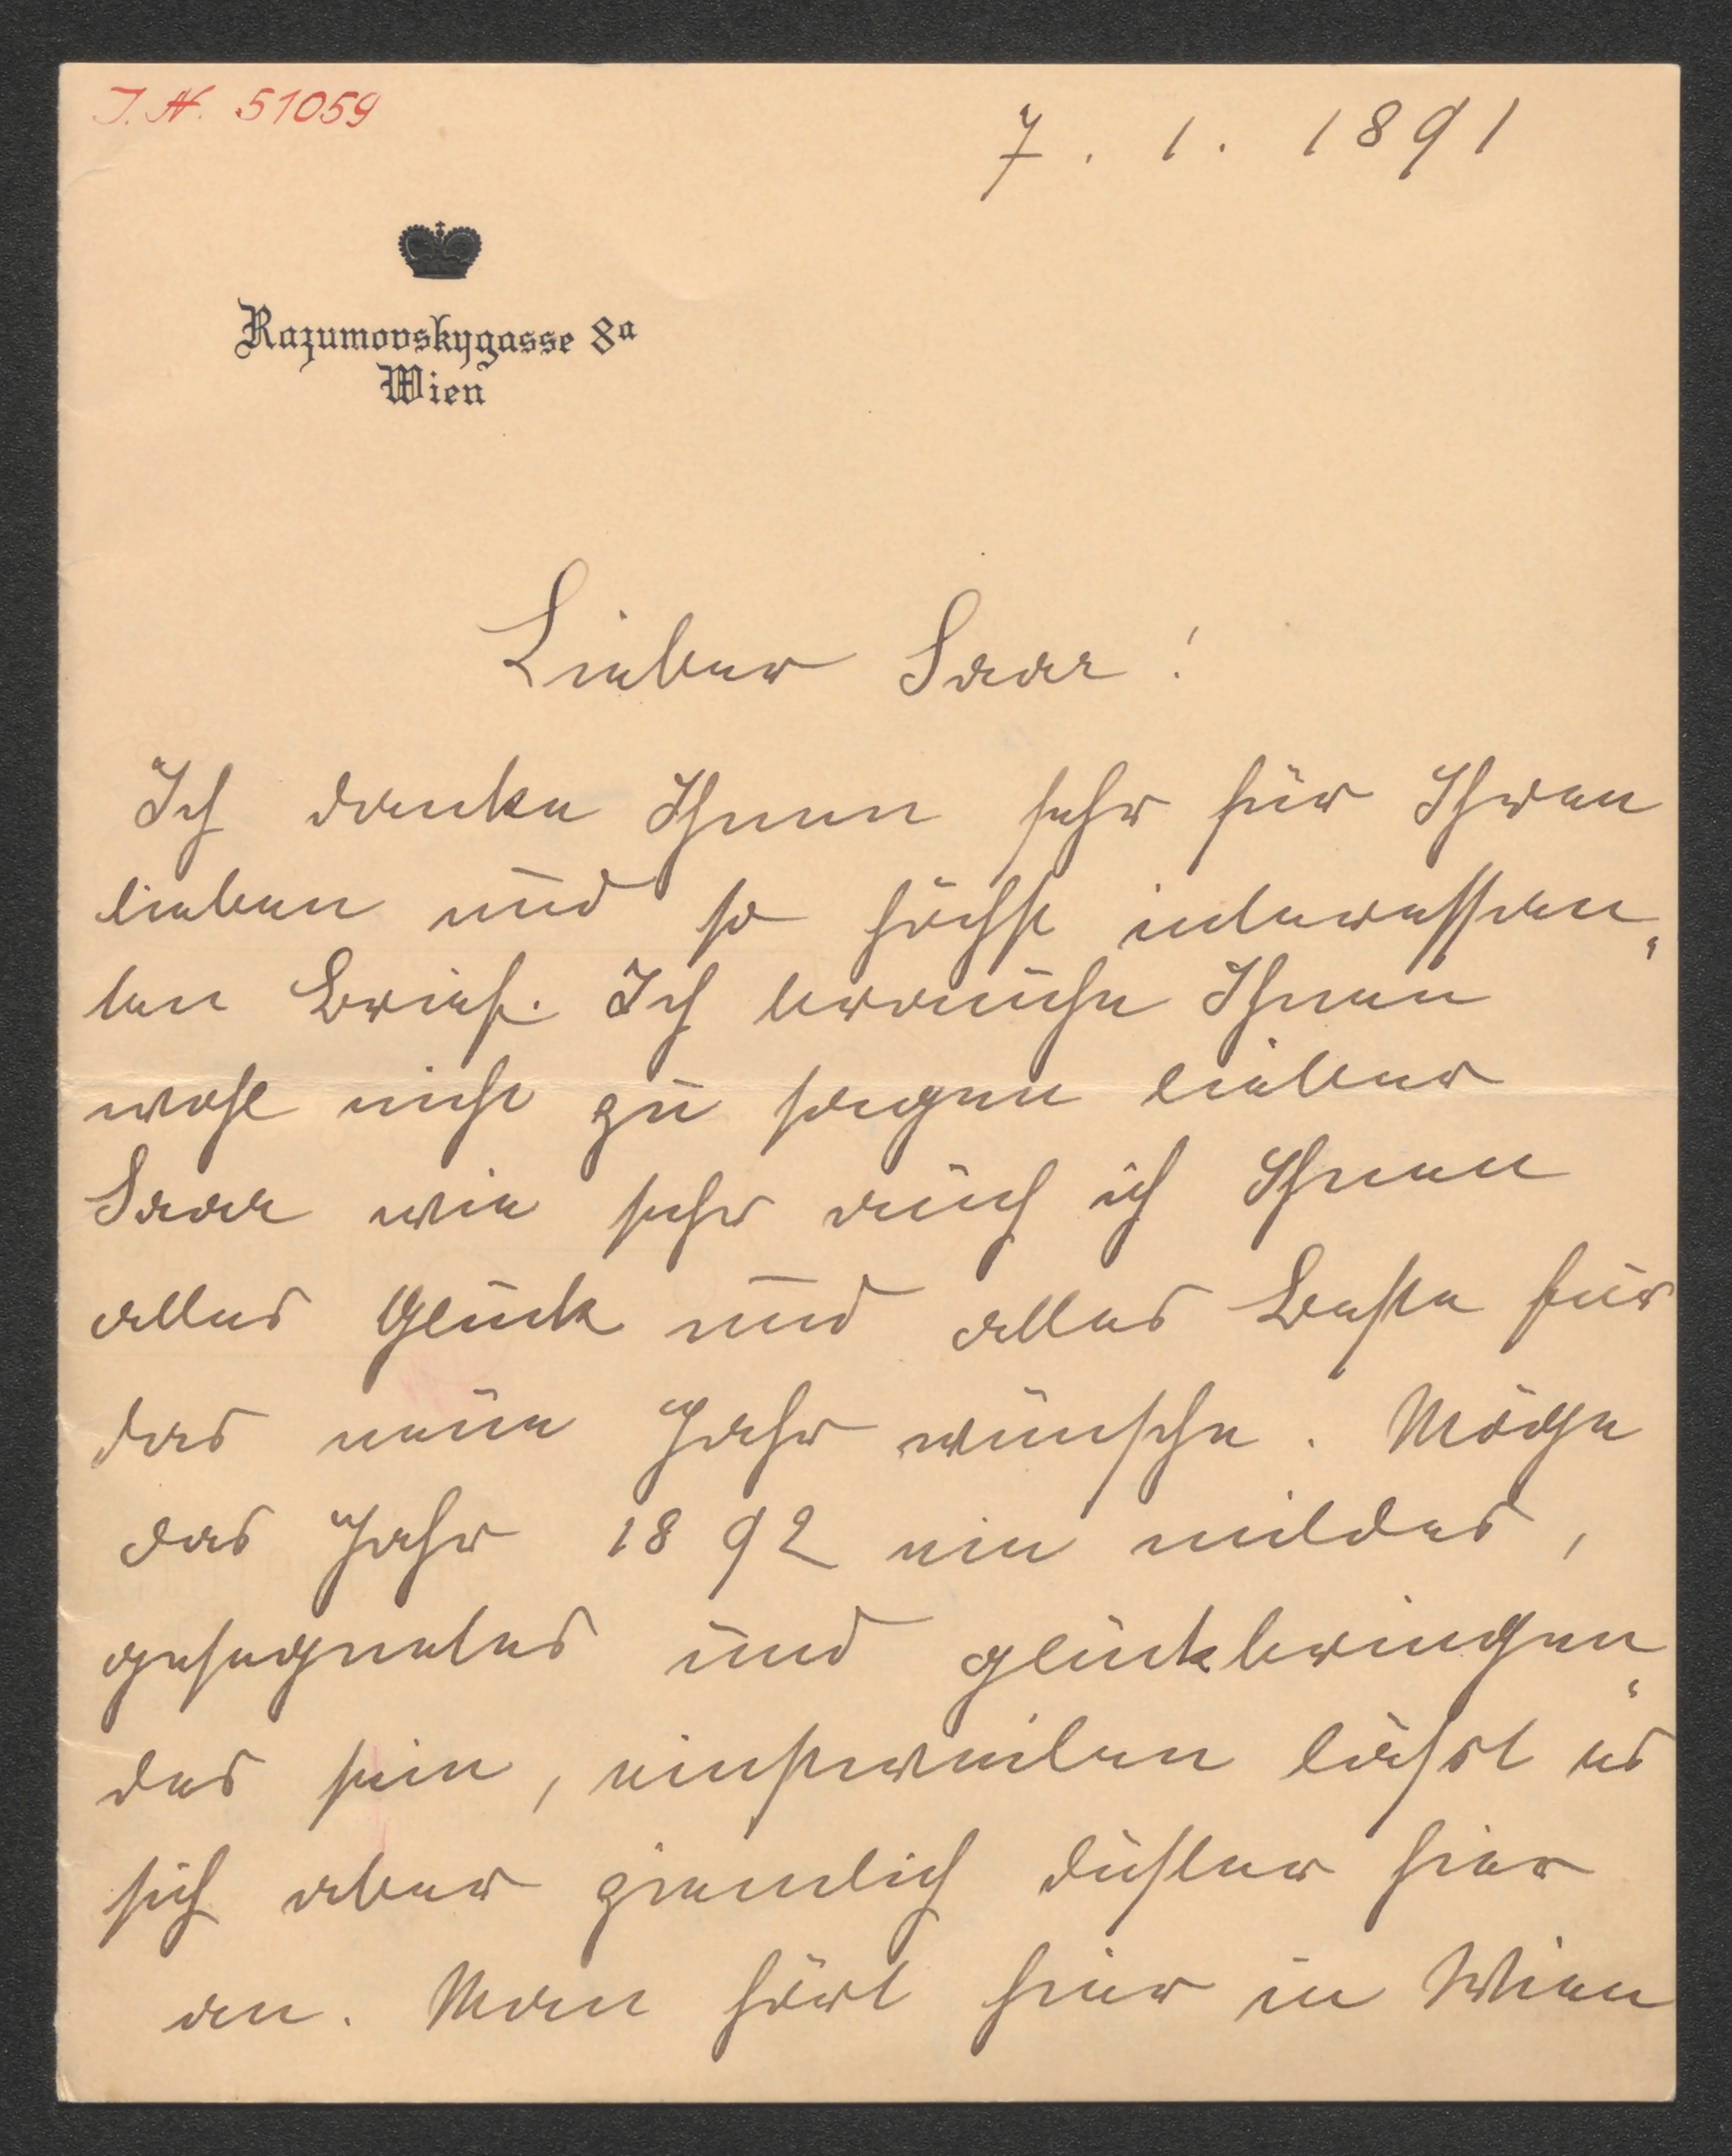 J. N. 51059
7. 1. 1891
Razumovskygasse 8a
Wien
Lieber Saar!
Ich danke Ihnen sehr für Ihren
lieben und so höchst interessan„
ten Brief. Ich brauche Ihnen
wohl nicht zu sagen lieber
Saar wie sehr auch ich Ihnen
alles Glück und alles Beste für
das neue Jahr wünsche. Möge
das Jahr 1892 ein mildes,
gesegnetes und glückbringen„
des sein, einstweilen läßt es
sich aber ziemlich düster hier
an. Man hört hier in Wien